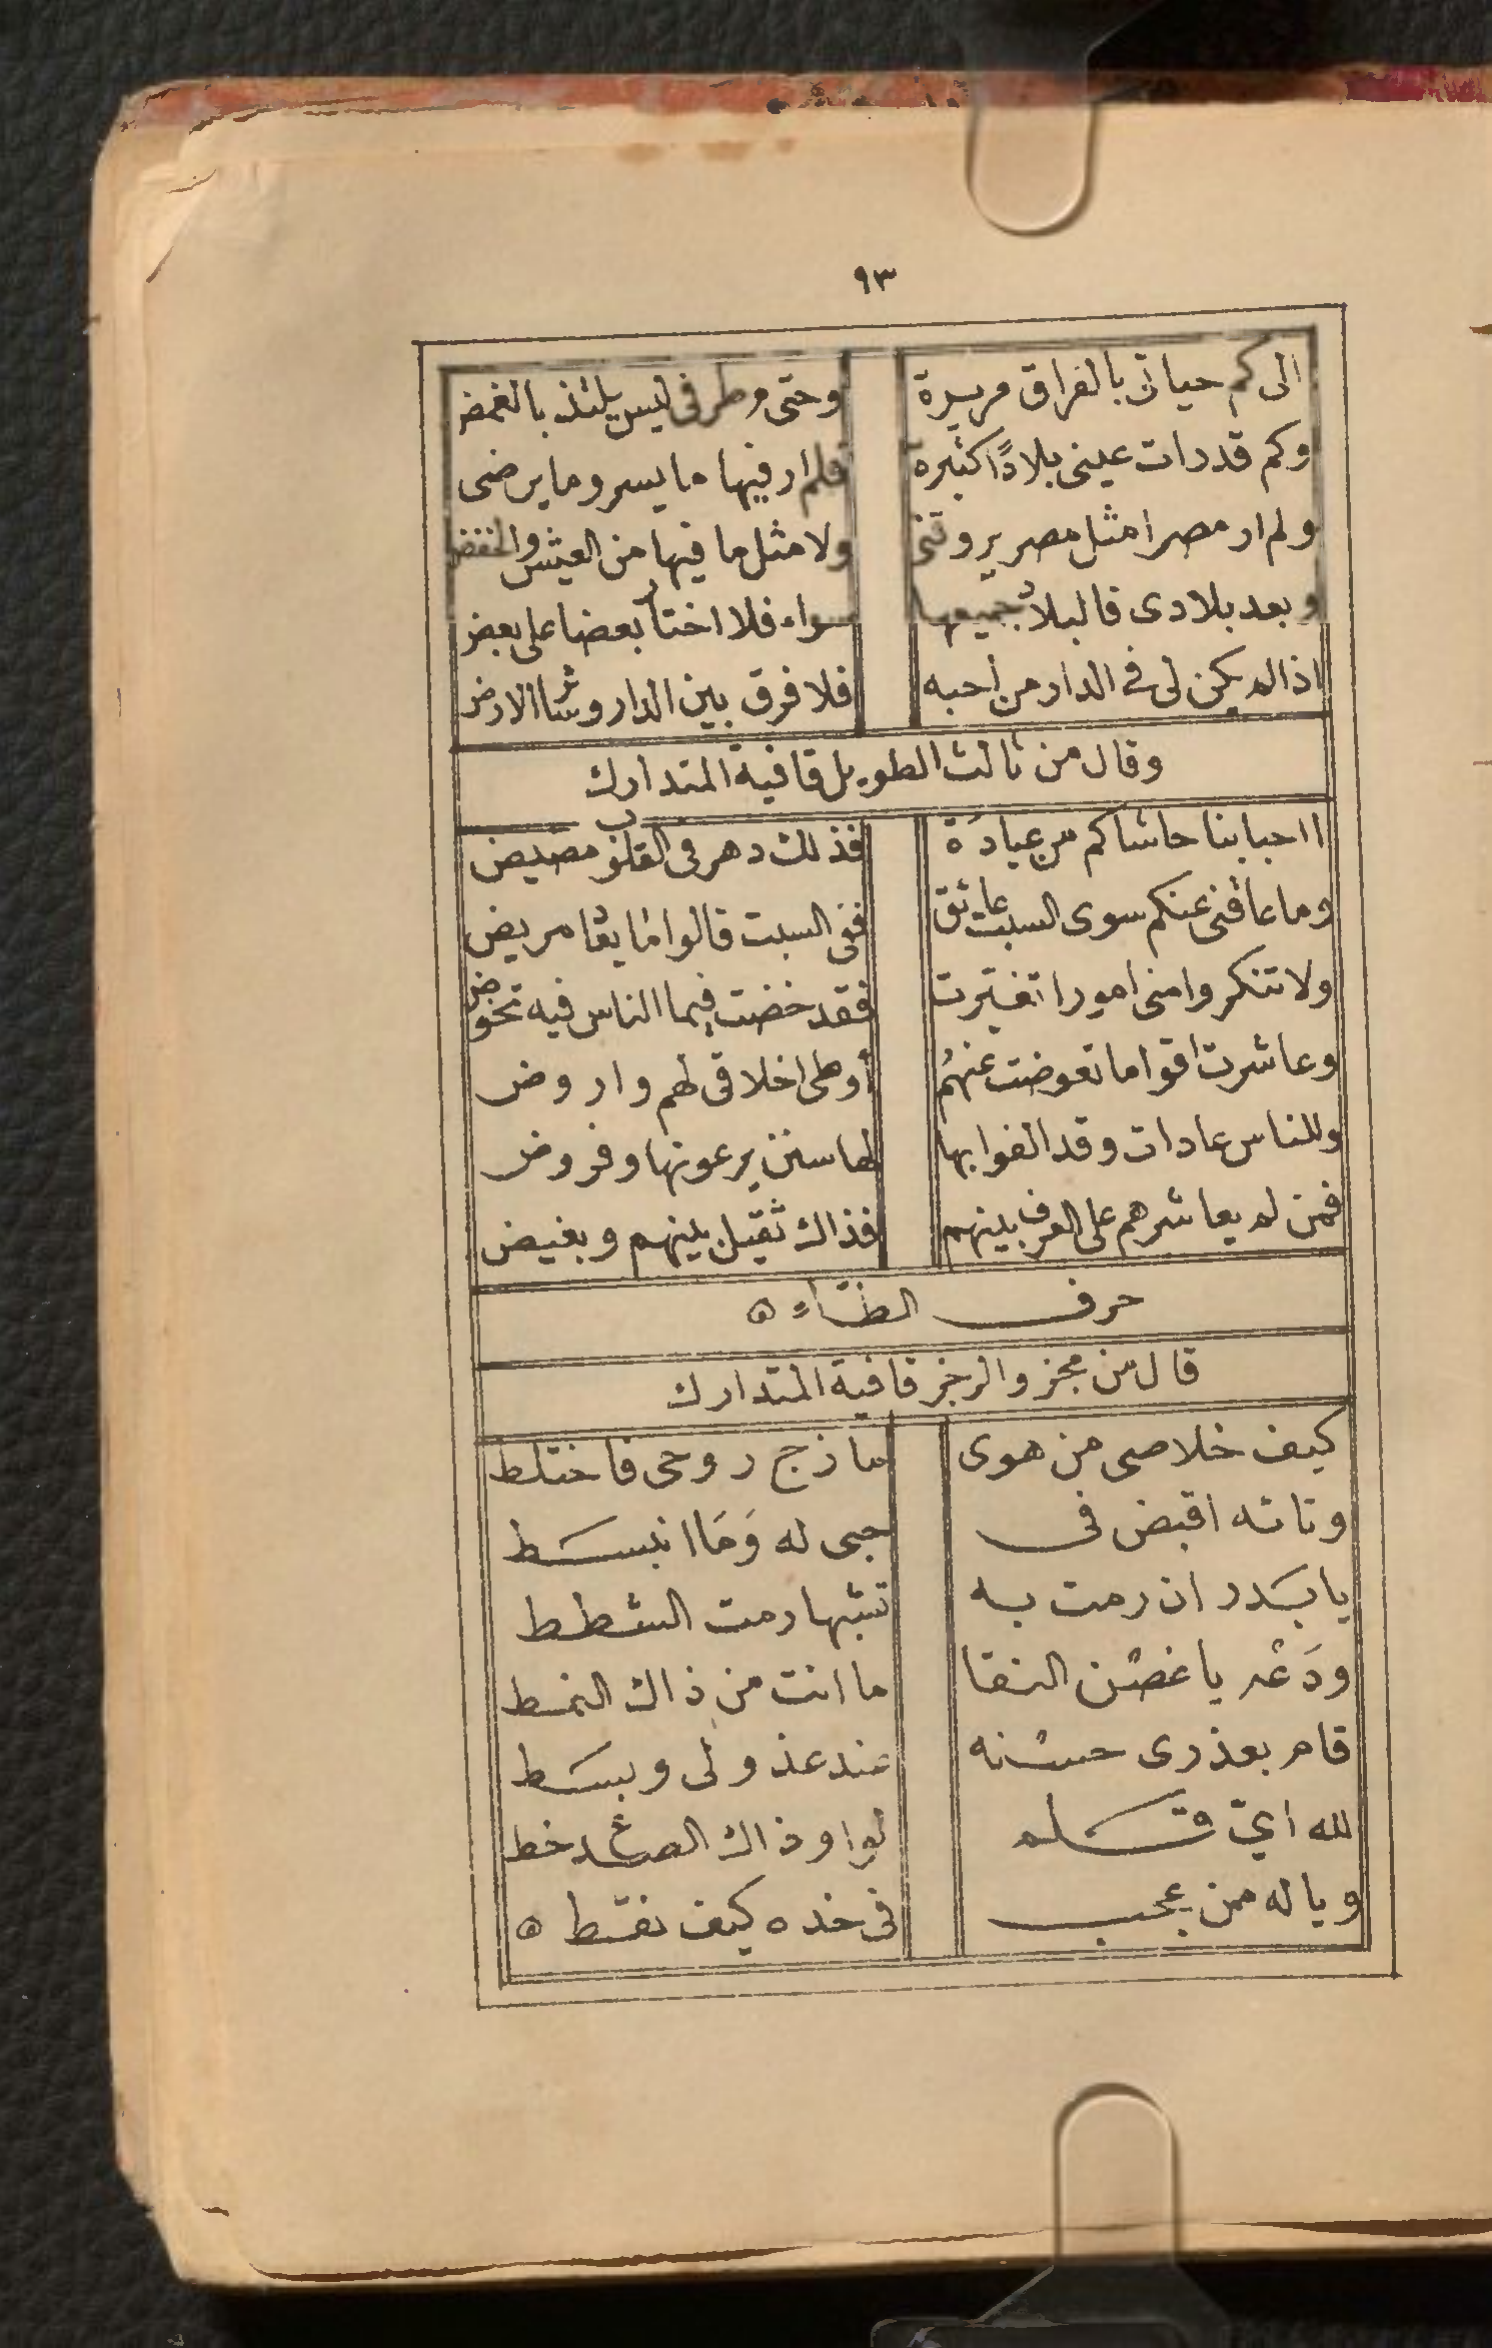 ٩٣
الى كم حياتى بالفراق مريرة وحتى وطرفى ليس يلتذ بالغمض
وكم قد رات عينى بلادًا كثيرة فلم ار فيها ما يسر وما يرضى
ولم ار مصرا مثل مصر يروقنى ولا مثل ما فيها من العيش والخفض
وبعد بلادى فالبلاد جميعها سواء فلا اختار بعضا على بعض
اذا لم يكن لى فى الدار من أحبه فلا فرق بين الدار وشا الارض
وقال من ثالث الطويل قافية المتدارك
ااحبابنا حاشاكم من عيادة فذلك دهر فى القلوب مضيض
وما عاقنى عنكم سوى السبت عائق ففى السبت قالوا ما يقا مريض
ولا تنكروا منى امورا تغيرت فقد خضت فيما الناس فيه تخوض
وعاشرت اقواما تعوضت عنهُم أوطى اخلاقى لهم واروض
وللناس عادات وقد الفوا بها لها سنن يرعونها وفروض
فمن لم يعاشرهم على العرف بينهم فذاك ثقيل بينهم وبغيض
حرف الطاء ه
قال من مجزو الرجز قافية المتدارك
كيف خلاصى من هوى مازج روحى فاختلط
وتائه اقبض فى حبى له وَمَا انبسط
يا بَدر ان رمت به تشبها رمت الشطط
ودَعْه يا غصْن النقا ما انت من ذاك النمط
قام بعذرى حسْنه عند عذولى وبسَط
لله ايّ قلم لواو ذاك الصدغ خط
ويا له من عجب فى خده كيف نقط ه